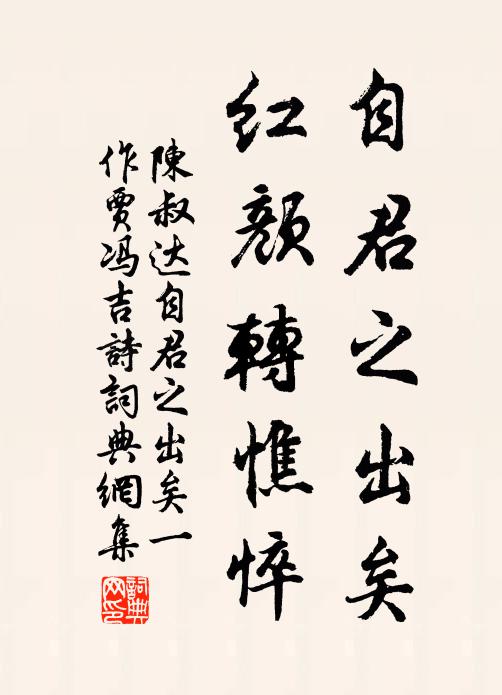 自君之出矣
紅顏轉憔悴
陳叔达自君之出矣一
作賈冯吉詩詞典網集
詞典网印